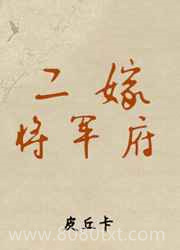 二嫁
将军府
皮丘卡
www.8080txt.com